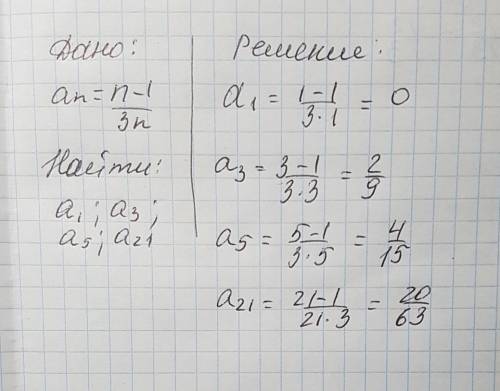 Дано:
an = n-1/3n
Найти:
a1; a3;
a5; a21
Решение:
a1 = 1-1/3·1 = 0
a3 = 3-1/3·3 = 2/9
a5 = 5-1/3·5 = 4/15
a21 = 21-1/21·3 = 20/63